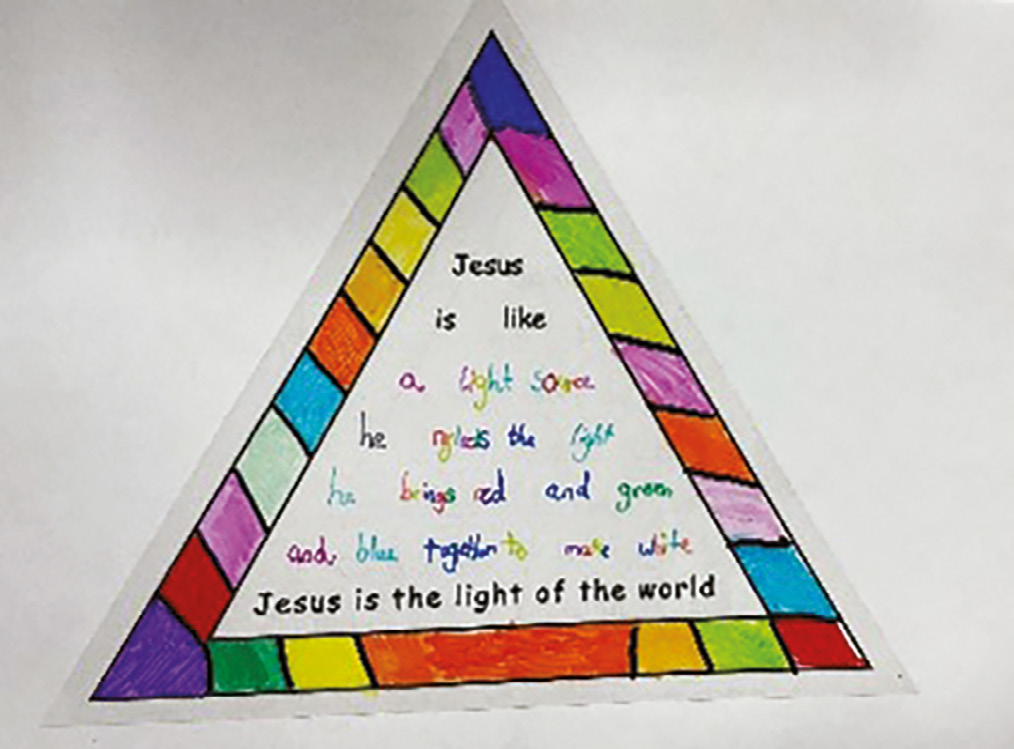 Jesus
is like
a light source
he the light
he brings red and green
and blue together to make white
Jesus is the light of the world